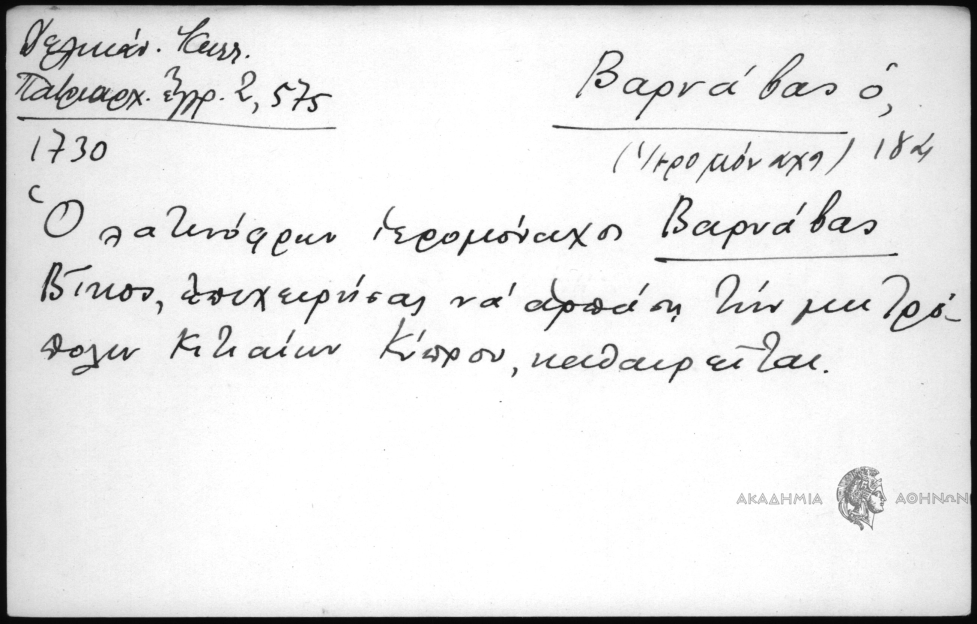 Δελικάν. Καλλ.
Πατριαρχ. ἔγγρ. 2, 575
1730
Βαρνάβας ὁ,
(Ἱερομόναχος) 184
Ὁ λατινόφρων ἱερομόναχος Βαρνάβας
Βῖκος, ἐπιχειρήσας νά ἁρπάσῃ τήν μητρό-
πολιν Κιτιαίων Κύπρου, καθαιρεῖται.
ΑΚΑΔΗΜΙΑ ΑΘΗΝΩΝ